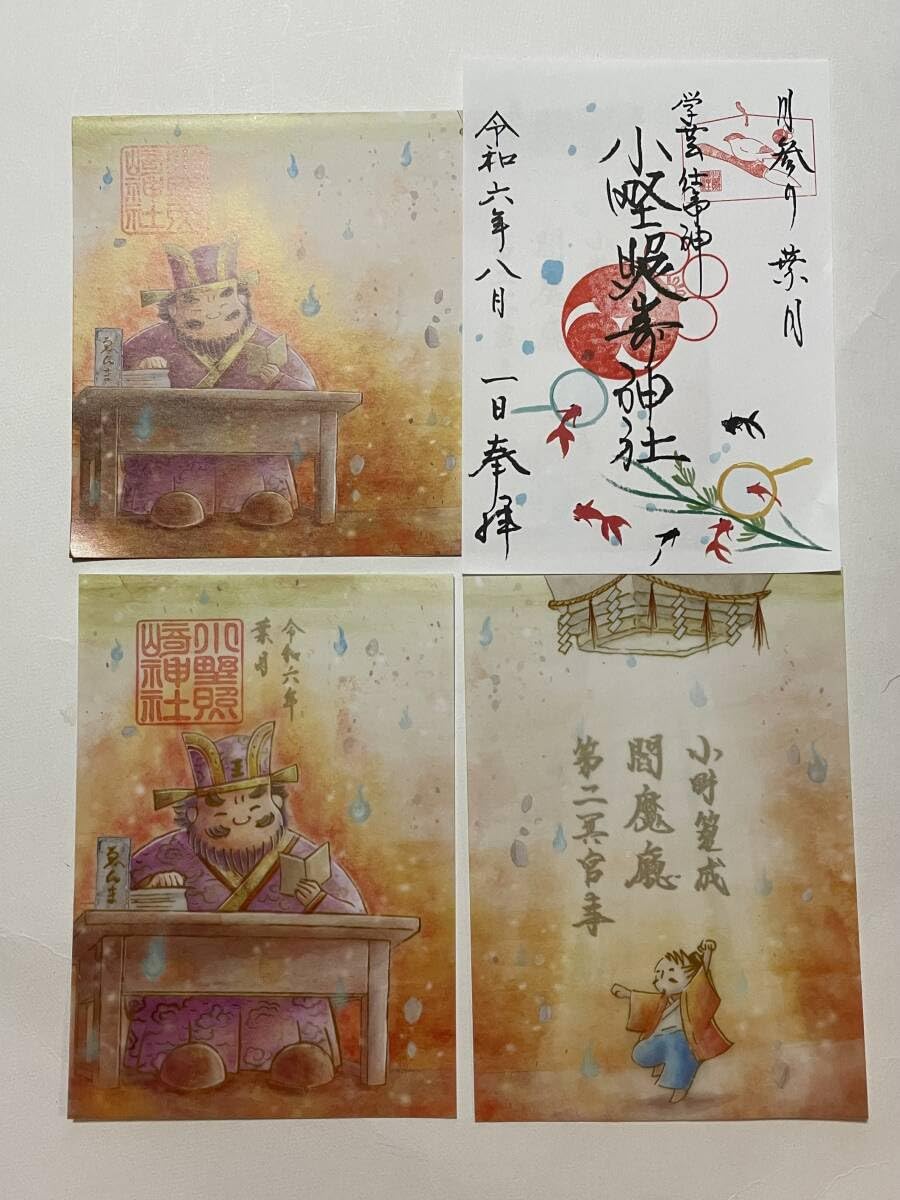 小野照崎神社
ゑんま
月参り 葉月
学芸仕事神
小野照崎神社
令和六年八月一日奉拝
小野照崎神社
令和六年
葉月
ゑんま
小野篁成
閻魔廳
第二冥官